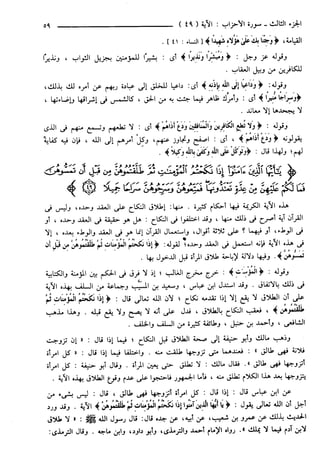 الجزء الثالث - سورة الأحزاب : الآية ( ٤٩ ) ٥٩
القيامة، ﴿ وَجِئْنَا بِكَ عَلَىٰ هَٰؤُلَاءِ شَهِيدًا ﴾ [ النساء : ٤١ ] .
وقوله عز وجل : ﴿ وَمُبَشِّرًا وَنَذِيرًا ﴾ أى : بشيرًا للمؤمنين بجزيل الثواب ، ونذيرًا
للكافرين من وبيل العقاب .
وقوله : ﴿ وَدَاعِيًا إِلَى اللَّهِ بِإِذْنِهِ ﴾ أى : داعيا للخلق إلى عبادة ربهم عن أمره لك بذلك،
﴿ وَسِرَاجًا مُّنِيرًا ﴾ أى : وأمرك ظاهر فيما جئت به من الحق ، كالشمس فى إشراقها وإضاءتها ،
لا يجحدها إلا معاند .
وقوله : ﴿ وَلَا تُطِعِ الْكَافِرِينَ وَالْمُنَافِقِينَ وَدَعْ أَذَاهُمْ ﴾ أى : لا تطعهم وتسمع منهم فى الذى
يقولونه ﴿ وَدَعْ أَذَاهُمْ ﴾ ، أى : اصفح وتجاوز عنهم، وكِلْ أمرهم إلى الله ، فإن فيه كفاية
لهم ، ولهذا قال : ﴿ وَتَوَكَّلْ عَلَى اللَّهِ وَكَفَىٰ بِاللَّهِ وَكِيلًا ﴾ .
﴿ يَا أَيُّهَا الَّذِينَ آمَنُوا إِذَا نَكَحْتُمُ الْمُؤْمِنَاتِ ثُمَّ طَلَّقْتُمُوهُنَّ مِن قَبْلِ أَن تَمَسُّوهُنَّ
فَمَا لَكُمْ عَلَيْهِنَّ مِنْ عِدَّةٍ تَعْتَدُّونَهَا فَمَتِّعُوهُنَّ وَسَرِّحُوهُنَّ سَرَاحًا جَمِيلًا ٤٩ ﴾
هذه الآية الكريمة فيها أحكام كثيرة . منها: إطلاق النكاح على العقد وحده، وليس فى
القرآن آية أصرح فى ذلك منها ، وقد اختلفوا فى النكاح : هل هو حقيقة فى العقد وحده ، أو
فى الوطء، أو فيهما ؟ على ثلاثة أقوال، واستعمال القرآن إنما هو فى العقد والوطء بعده ، إلا
فى هذه الآية فإنه استعمل فى العقد وحده؛ لقوله: ﴿ إِذَا نَكَحْتُمُ الْمُؤْمِنَاتِ ثُمَّ طَلَّقْتُمُوهُنَّ مِن قَبْلِ أَن
تَمَسُّوهُنَّ ﴾ . وفيها دلالة لإباحة طلاق المرأة قبل الدخول بها .
وقوله : ﴿ الْمُؤْمِنَاتِ ﴾ : خرج مخرج الغالب ؛ إذ لا فرق فى الحكم بين المؤمنة والكتابية
فى ذلك بالاتفاق . وقد استدل ابن عباس ، وسعيد بن المسيب وجماعة من السلف بهذه الآية
على أن الطلاق لا يقع إلا إذا تقدمه نكاح ؛ لأن الله تعالى قال : ﴿ إِذَا نَكَحْتُمُ الْمُؤْمِنَاتِ ثُمَّ
طَلَّقْتُمُوهُنَّ ﴾ ، فعقب النكاح بالطلاق ، فدل على أنه لا يصح ولا يقع قبله . وهذا مذهب
الشافعى ، وأحمد بن حنبل ، وطائفة كثيرة من السلف والخلف .
وذهب مالك وأبو حنيفة إلى صحة الطلاق قبل النكاح ؛ فيما إذا قال : « إن تزوجت
فلانة فهى طالق » . فعندهما متى تزوجها طلقت منه . واختلفا فيما إذا قال : « كل امرأة
أتزوجها فهى طالق ». فقال مالك : لا تطلق حتى يعين المرأة . وقال أبو حنيفة : كل امرأة
يتزوجها بعد هذا الكلام تطلق منه ، فأما الجمهور فاحتجوا على عدم وقوع الطلاق بهذه الآية .
عن ابن عباس قال : إذا قال : كل امرأة أتزوجها فهى طالق ، قال : ليس بشىء من
أجل أن الله تعالى يقول : ﴿ يَا أَيُّهَا الَّذِينَ آمَنُوا إِذَا نَكَحْتُمُ الْمُؤْمِنَاتِ ثُمَّ طَلَّقْتُمُوهُنَّ ﴾ الآية . وقد ورد
الحديث بذلك عن عمرو بن شعيب، عن أبيه، عن جده قال: قال رسول الله ﷺ : « لا طلاق
لابن آدم فيما لا يملك ». رواه الإمام أحمد والترمذى، وأبو داود، وابن ماجه . وقال الترمذى: